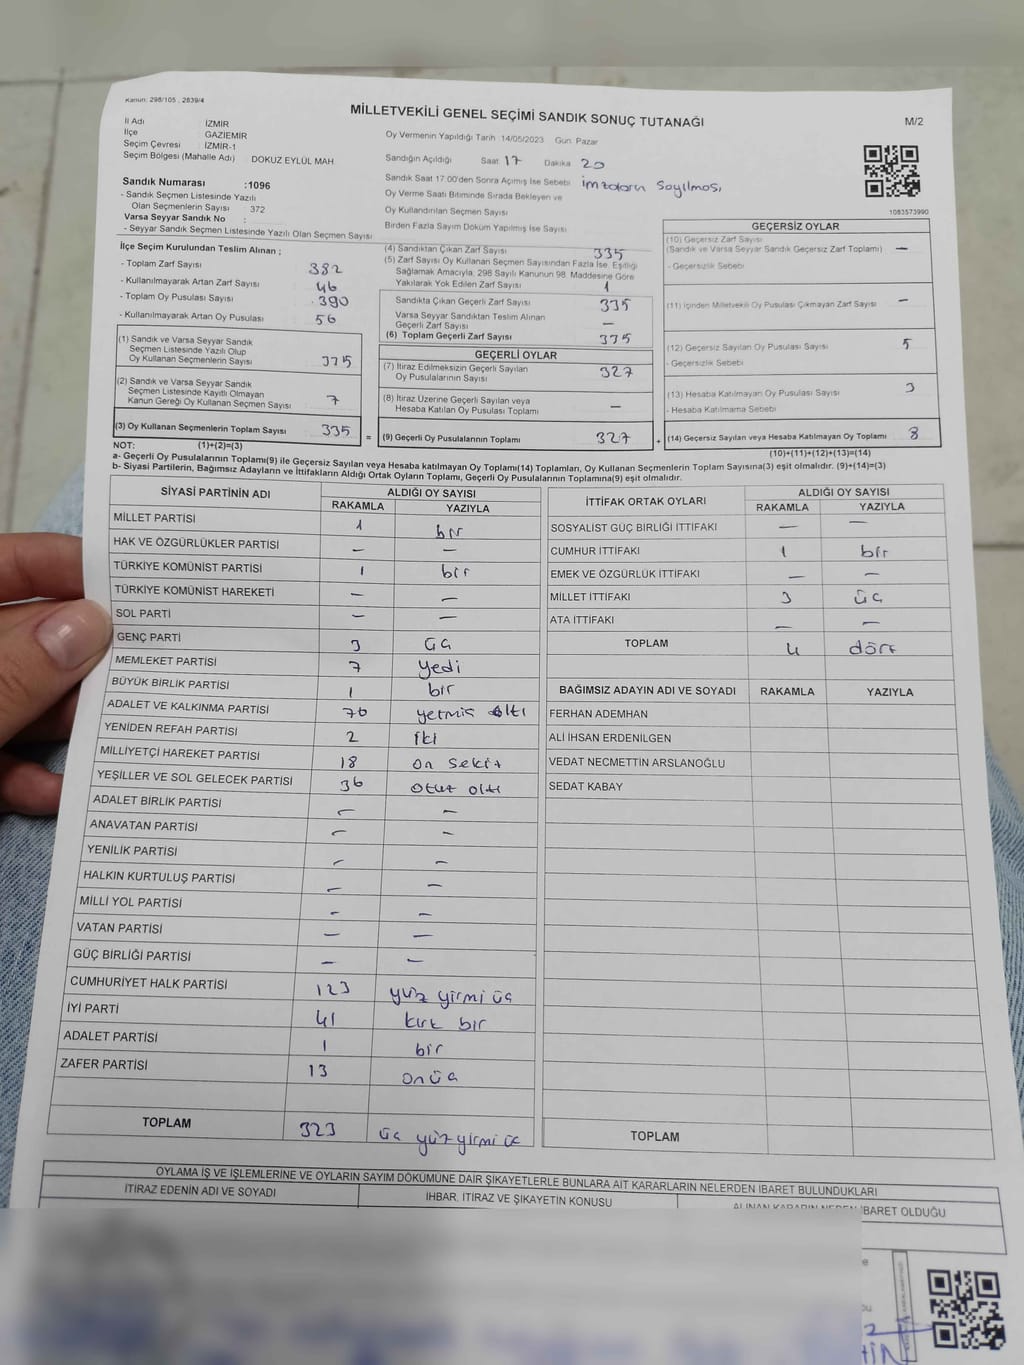 Kanun: 298/105 , 2839/4
MİLLETVEKİLİ GENEL SEÇİMİ SANDIK SONUÇ TUTANAĞI
M/2
İl Adı : İZMİR
İlçe GAZİEMİR
Seçim Çevresi : İZMİR-1
Seçim Bölgesi (Mahalle Adı) : DOKUZ EYLÜL MAH
Sandık Numarası :1096
- Sandık Seçmen Listesinde Yazılı
Olan Seçmenlerin Sayısı : 372
Varsa Seyyar Sandık No :
- Seyyar Sandık Seçmen Listesinde Yazılı Olan Seçmen Sayısı
Oy Vermenin Yapıldığı Tarih :14/05/2023 Gün: Pazar
Sandığın Açıldığı Saat 17 Dakika 20
Sandık Saat 17:00'den Sonra Açımış İse Sebebi imzaların sayılması
Oy Verme Saati Bitiminde Sırada Bekleyen ve
Oy Kullandırılan Seçmen Sayısı
Birden Fazla Sayım Döküm Yapılmış İse Sayısı
1083573990
İlçe Seçim Kurulundan Teslim Alınan ;
- Toplam Zarf Sayısı 382
- Kullanılmayarak Artan Zarf Sayısı 46
- Toplam Oy Pusulası Sayısı 390
- Kullanılmayarak Artan Oy Pusulası 56
(1) Sandık ve Varsa Seyyar Sandık
Seçmen Listesinde Yazılı Olup
Oy Kullanan Seçmenlerin Sayısı
(2) Sandık ve Varsa Seyyar Sandık
Seçmen Listesinde Kayıtlı Olmayan
Kanun Gereği Oy Kullanan Seçmen Sayısı 7
(3) Oy Kullanan Seçmenlerin Toplam Sayısı 335
(4) Sandıktan Çıkan Zarf Sayısı 335
(5) Zarf Sayısı Oy Kullanan Seçmen Sayısından Fazla İse, Eşitliği
Sağlamak Amacıyla, 298 Sayılı Kanunun 98. Maddesine Göre
Yakılarak Yok Edilen Zarf Sayısı 1
Sandıkta Çıkan Geçerli Zarf Sayısı 335
Varsa Seyyar Sandıktan Teslim Alınan
Geçerli Zarf Sayısı —
(6) Toplam Geçerli Zarf Sayısı 335
GEÇERLİ OYLAR
(7) İtiraz Edilmeksizin Geçerli Sayılan
Oy Pusulalarının Sayısı 327
(8) İtiraz Üzerine Geçerli Sayılan veya
Hesaba Katılan Oy Pusulası Toplamı —
= (9) Geçerli Oy Pusulalarının Toplamı 327 +
GEÇERSİZ OYLAR
(10) Geçersiz Zarf Sayısı
(Sandık ve Varsa Seyyar Sandık Geçersiz Zarf Toplamı) —
- Geçersizlik Sebebi
(11) İçinden Milletvekili Oy Pusulası Çıkmayan Zarf Sayısı —
(12) Geçersiz Sayılan Oy Pusulası Sayısı 5
- Geçersizlik Sebebi
(13) Hesaba Katılmayan Oy Pusulası Sayısı 3
- Hesaba Katılmama Sebebi
(14) Geçersiz Sayılan veya Hesaba Katılmayan Oy Toplamı 8
NOT: (1)+(2)=(3)
(10)+(11)+(12)+(13)=(14)
a- Geçerli Oy Pusulalarının Toplamı(9) ile Geçersiz Sayılan veya Hesaba katılmayan Oy Toplamı(14) Toplamları, Oy Kullanan Seçmenlerin Toplam Sayısına(3) eşit olmalıdır. (9)+(14)=(3)
b- Siyasi Partilerin, Bağımsız Adayların ve İttifakların Aldığı Ortak Oyların Toplamı, Geçerli Oy Pusulalarının Toplamına(9) eşit olmalıdır.
SİYASİ PARTİNİN ADI ALDIĞI OY SAYISI
RAKAMLA YAZIYLA
MİLLET PARTİSİ 1 bir
HAK VE ÖZGÜRLÜKLER PARTİSİ — —
TÜRKİYE KOMÜNİST PARTİSİ 1 bir
TÜRKİYE KOMÜNİST HAREKETİ — —
SOL PARTİ — —
GENÇ PARTİ 3 üç
MEMLEKET PARTİSİ 7 yedi
BÜYÜK BİRLİK PARTİSİ 1 bir
ADALET VE KALKINMA PARTİSİ 76 yetmiş altı
YENİDEN REFAH PARTİSİ 2 iki
MİLLİYETÇİ HAREKET PARTİSİ 18 on sekiz
YEŞİLLER VE SOL GELECEK PARTİSİ 36 otuz altı
ADALET BİRLİK PARTİSİ — —
ANAVATAN PARTİSİ — —
YENİLİK PARTİSİ — —
HALKIN KURTULUŞ PARTİSİ — —
MİLLİ YOL PARTİSİ — —
VATAN PARTİSİ — —
GÜÇ BİRLİĞİ PARTİSİ — —
CUMHURİYET HALK PARTİSİ 123 yüz yirmi üç
İYİ PARTİ 41 kırk bir
ADALET PARTİSİ 1 bir
ZAFER PARTİSİ 13 onüç
TOPLAM 323 üç yüz yirmi üç
İTTİFAK ORTAK OYLARI ALDIĞI OY SAYISI
RAKAMLA YAZIYLA
SOSYALİST GÜÇ BİRLİĞİ İTTİFAKI — —
CUMHUR İTTİFAKI 1 bir
EMEK VE ÖZGÜRLÜK İTTİFAKI — —
MİLLET İTTİFAKI 3 üç
ATA İTTİFAKI — —
TOPLAM 4 dört
BAĞIMSIZ ADAYIN ADI VE SOYADI RAKAMLA YAZIYLA
FERHAN ADEMHAN
ALİ İHSAN ERDENİLGEN
VEDAT NECMETTİN ARSLANOĞLU
SEDAT KABAY
TOPLAM
OYLAMA İŞ VE İŞLEMLERİNE VE OYLARIN SAYIM DÖKÜMÜNE DAİR ŞİKAYETLERLE BUNLARA AİT KARARLARIN NELERDEN İBARET BULUNDUKLARI
İTİRAZ EDENİN ADI VE SOYADI
İHBAR, İTİRAZ VE ŞİKAYETİN KONUSU
ALINAN KARARIN NEDEN İBARET OLDUĞU